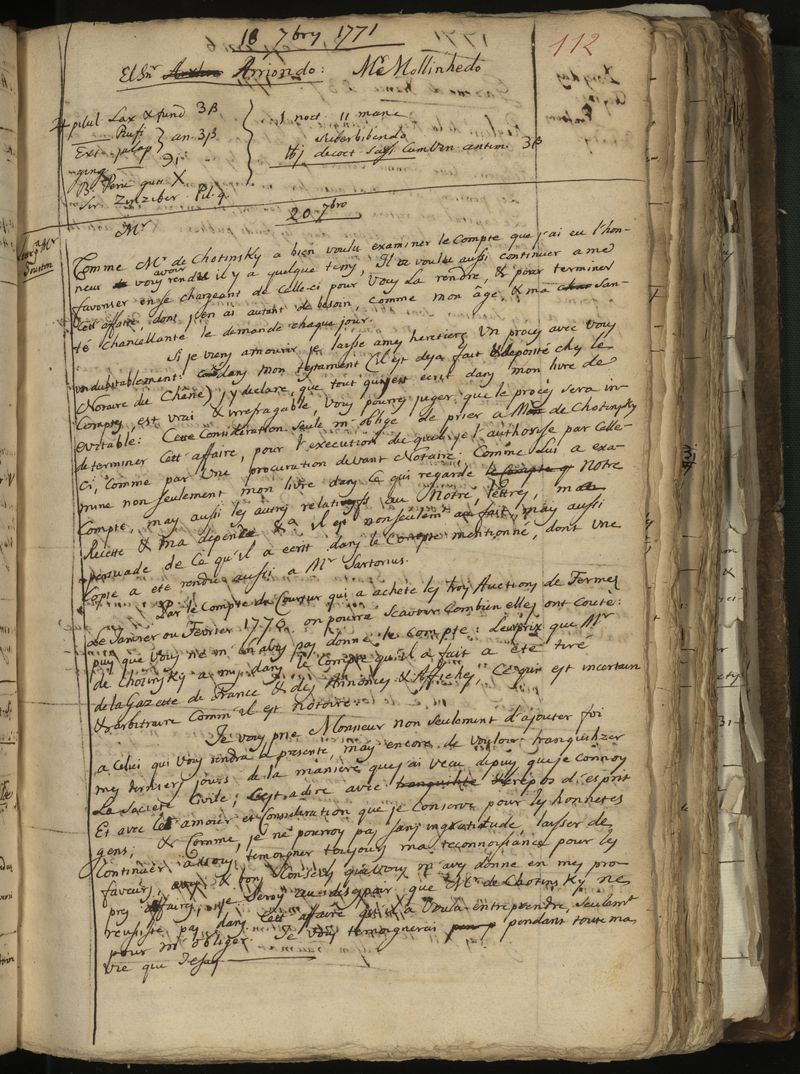 18 7bry 1771
112
El Snr Arriondo: Me Mollinhedo
pilul Lax & fund 3β
Rufi
Ext. jalap } an. 3β
ging 
B. Peru gutt X
Sir Zinziber. Pil. 9.
1 noct 11 mane
superbibendo
lbj decoct Sass. Cum Vin antim. 3β
20 7bro
Mr
Comme Mr de Chotinsky a bien voulu examiner le Compte que j'ai eu l'hon-
neur de vous avoir rendu il y a quelque tems, Il a voulu aussi continuer a me
favoriser en se chargeant de Celle-ci pour Vous La rendre, & pour terminer
Cett affaire, dont j'en ai autant de besoin, comme mon âge, & ma San-
té chancellante le demande chaque jour.
Si je viens amourir, je laisse amey heretiers Un proces avec Vous
indubitablement: dans mon testament (il est deja fait & deposté chez le
Notaire du Chêne) j'y declare, que tout quijest ecrit dans mon livre de
Comptes, est vrai & irrefragable, Vous pourrez juger que le procés sera in-
evitable: Cette Consideration seule m'oblige de prier a Mr de Chotinsky
determiner Cett affaire, pour l'execution de quel je l'authorise par Celle-
ci, Comme par Une procuration devant Notaire: Comme Lui a exa-
miné non seulement mon livre dans Ce qui regarde le Compte Notre
Compte, mais aussi les autres relatives au Notre, lettres,
Recette & ma depense &a il est nonseulemt au fait, mais aussi
persuade de Ce qu'il a ecrit dans le Compte mentionné, dont Une
Copie a ete rendu aussi a Mr Sartorius.
Par le Compte du Courtur qui a acheté les troy Auctions de Fermes
de Janvier ou Fevrier 1770, on pourra Scavoir Combien elles ont Couté:
puis que Vous ne m'en avez pas donné le Compte: Leurprix que Mr
de Chotinsky a mis dans le Compte qu'il a fait a eté tiré
de la Gazette de France & des Annonces & Affiches, Ce qui est incertain
& arbitraire Comm'il est notoire.
Je Vous prie Monsieur non seulement d'ajouter foi
a Celui qui Vous rendra la presente, mais encore de Vouloir tranquilizer
mes derniers jours de la manière que j'ai vecu depuis que je Connoy
La Societé Civile; C'est adire avec repos d'esprit
Et avec Cet amour et Consideration que je Conserve pour les honnetes
gens; & Comme, je ne pourrois pas sans ingratitude, laisser de
Continuer a Vous temoigner toujours ma reconnoissance pour les
faveurs, & bons Conseils que Vous m'avez donné en mes pro-
pres affaires, je Serois au desespoir que Mr de Chotinsky ne
reussite pas dans Cett affaire qu'il a Voulu entreprendre, seulemt
pour m'obliger. Je Vous temoignerai pendant toute ma
Vie que Jesuy